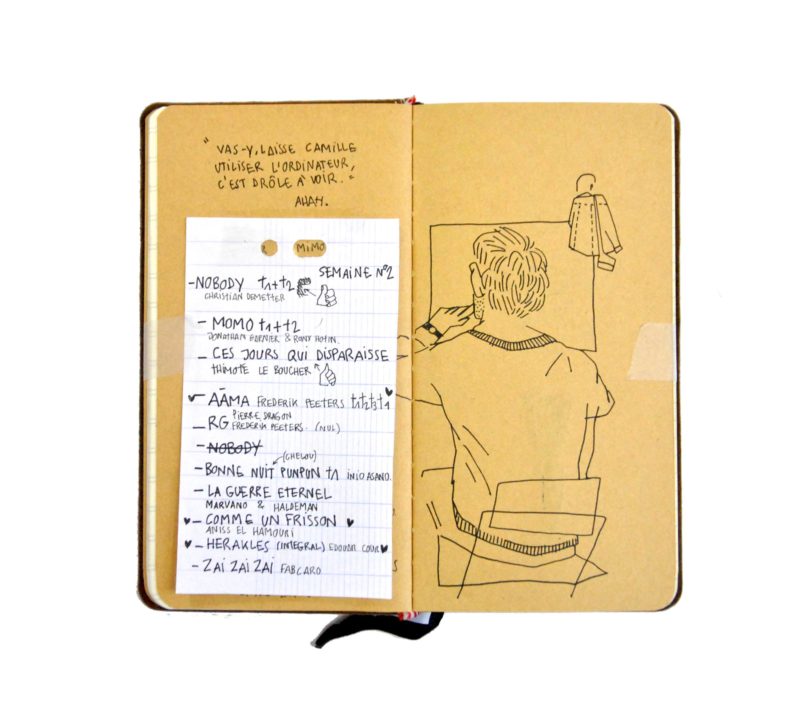 "VAS-Y, LAISSE CAMILLE
UTILISER L'ORDINATEUR,
C'EST DRÔLE À VOIR."
AHAH.
MIMO
SEMAINE N°2
-NOBODY t1+t2
CHRISTIAN DEMETTER
- MOMO t1+t2
JONATHAN GARNIER & RONY HOTIN
- CES JOURS QUI DISPARAISSE
THIMOTÉ LE BOUCHER
- AÂMA FREDERIK PEETERS t1t2t3t4
PIERRE DRAGON
- RG FREDERIK PEETERS. (NUL)
- NOBODY
(CHELOU)
- BONNE NUIT PUNPUN t1 INIO ASANO
- LA GUERRE ETERNEL
MARVANO & HALDEMAN
- COMME UN FRISSON
ANISS EL HAMOURI
- HERAKLES (INTEGRAL) EDOUAR COUR
- ZAI ZAI ZAI FABCARO